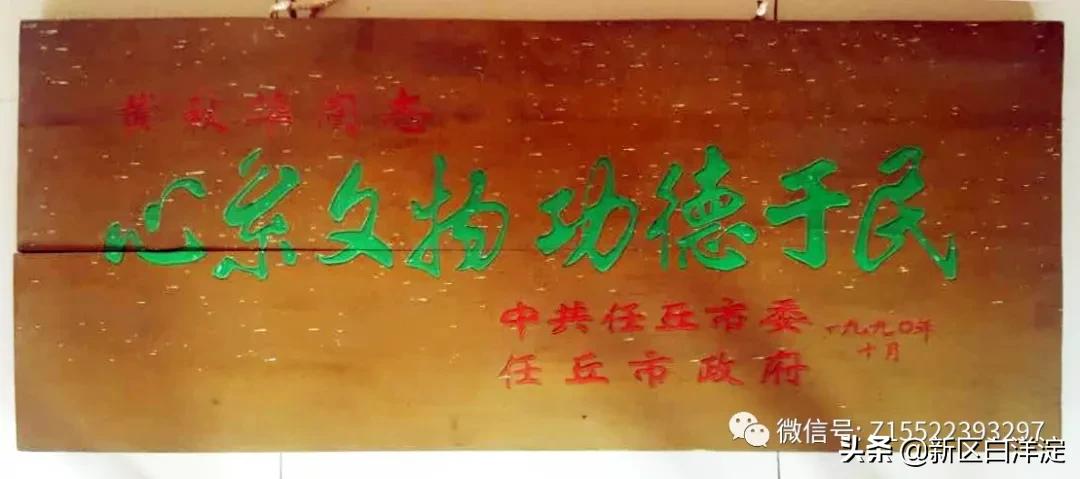 黄敏华同志
心系文物 功德于民
中共任丘市委
任丘市政府
一九九〇年
十月
微信号: Z15522393297
头条 @新区白洋淀